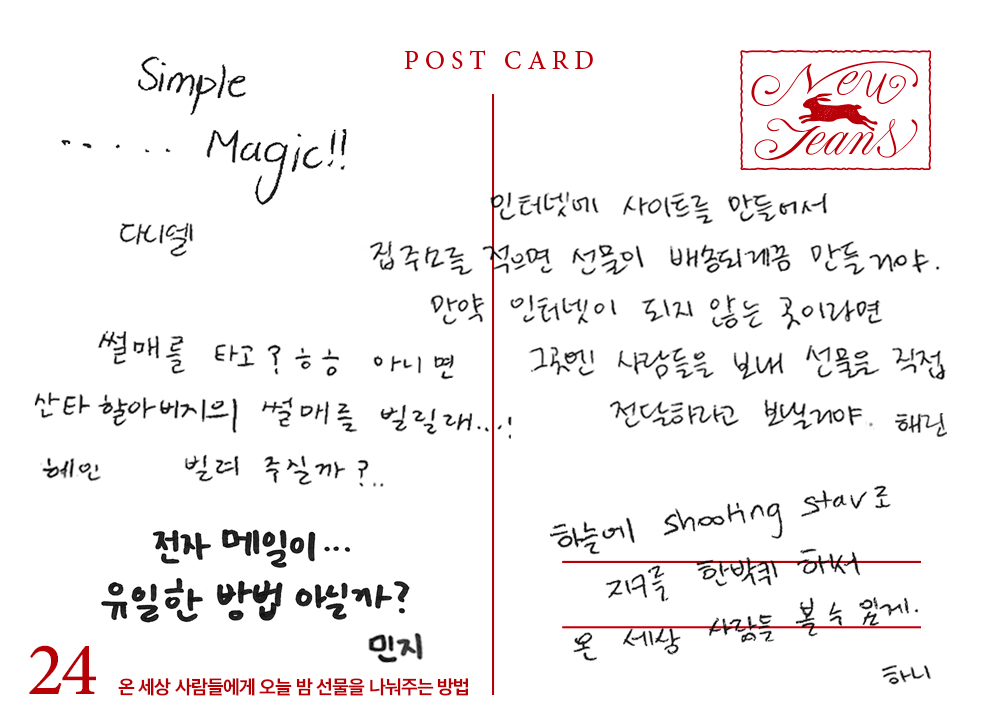 POST CARD
New
Jeans
Simple
...... Magic!!
다니엘
인터넷에 사이트를 만들어서
집주소를 적으면 선물이 배송되게끔 만들거야.
만약 인터넷이 되지 않는 곳이라면
그곳엔 사람들을 보내 선물을 직접
전달하라고 보낼거야. 해린
썰매를 타고? ㅎㅎ 아니면
산타할아버지의 썰매를 빌릴래...!
혜인 빌려 주실까?..
하늘에 shooting star로
지구를 한바퀴 하서
온 세상 사람들 볼 수 있게.
하니
전자 메일이...
유일한 방법 아닐까?
민지
24 온 세상 사람들에게 오늘 밤 선물을 나눠주는 방법